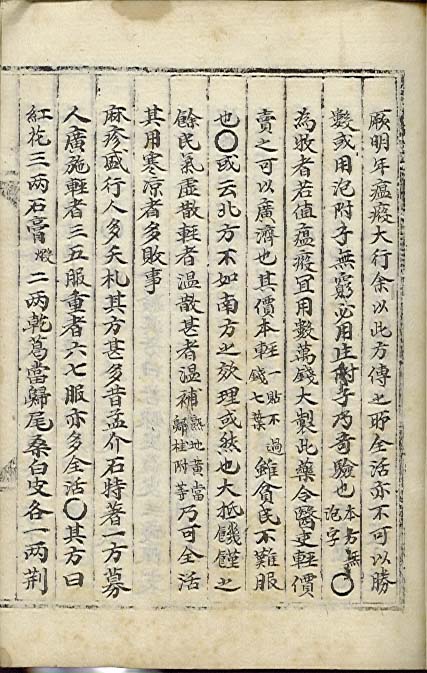 厥明年瘟疫大行余以此方傳之所全活亦不可以勝
數或用泡附子無窮必用正附子乃奇驗也本方無泡字〇
為牧者若值瘟疫宜用數萬錢大製此藥令醫吏輕價
賣之可以廣濟也其價本輕一貼不過錢七葉雖貧民不難服
也〇或云北方不如南方之效理或然也大抵饑饉之
餘民氣虛散輕者溫散甚者溫補熟地黃當歸桂附等乃可全活
其用寒凉者多敗事
麻疹盛行人多夭札其方甚多昔孟介石特著一方募
人廣施輕者三五服重者六七服亦多全活〇其方曰
紅花三兩石膏煅二兩乾葛當歸尾桑白皮各一兩荆